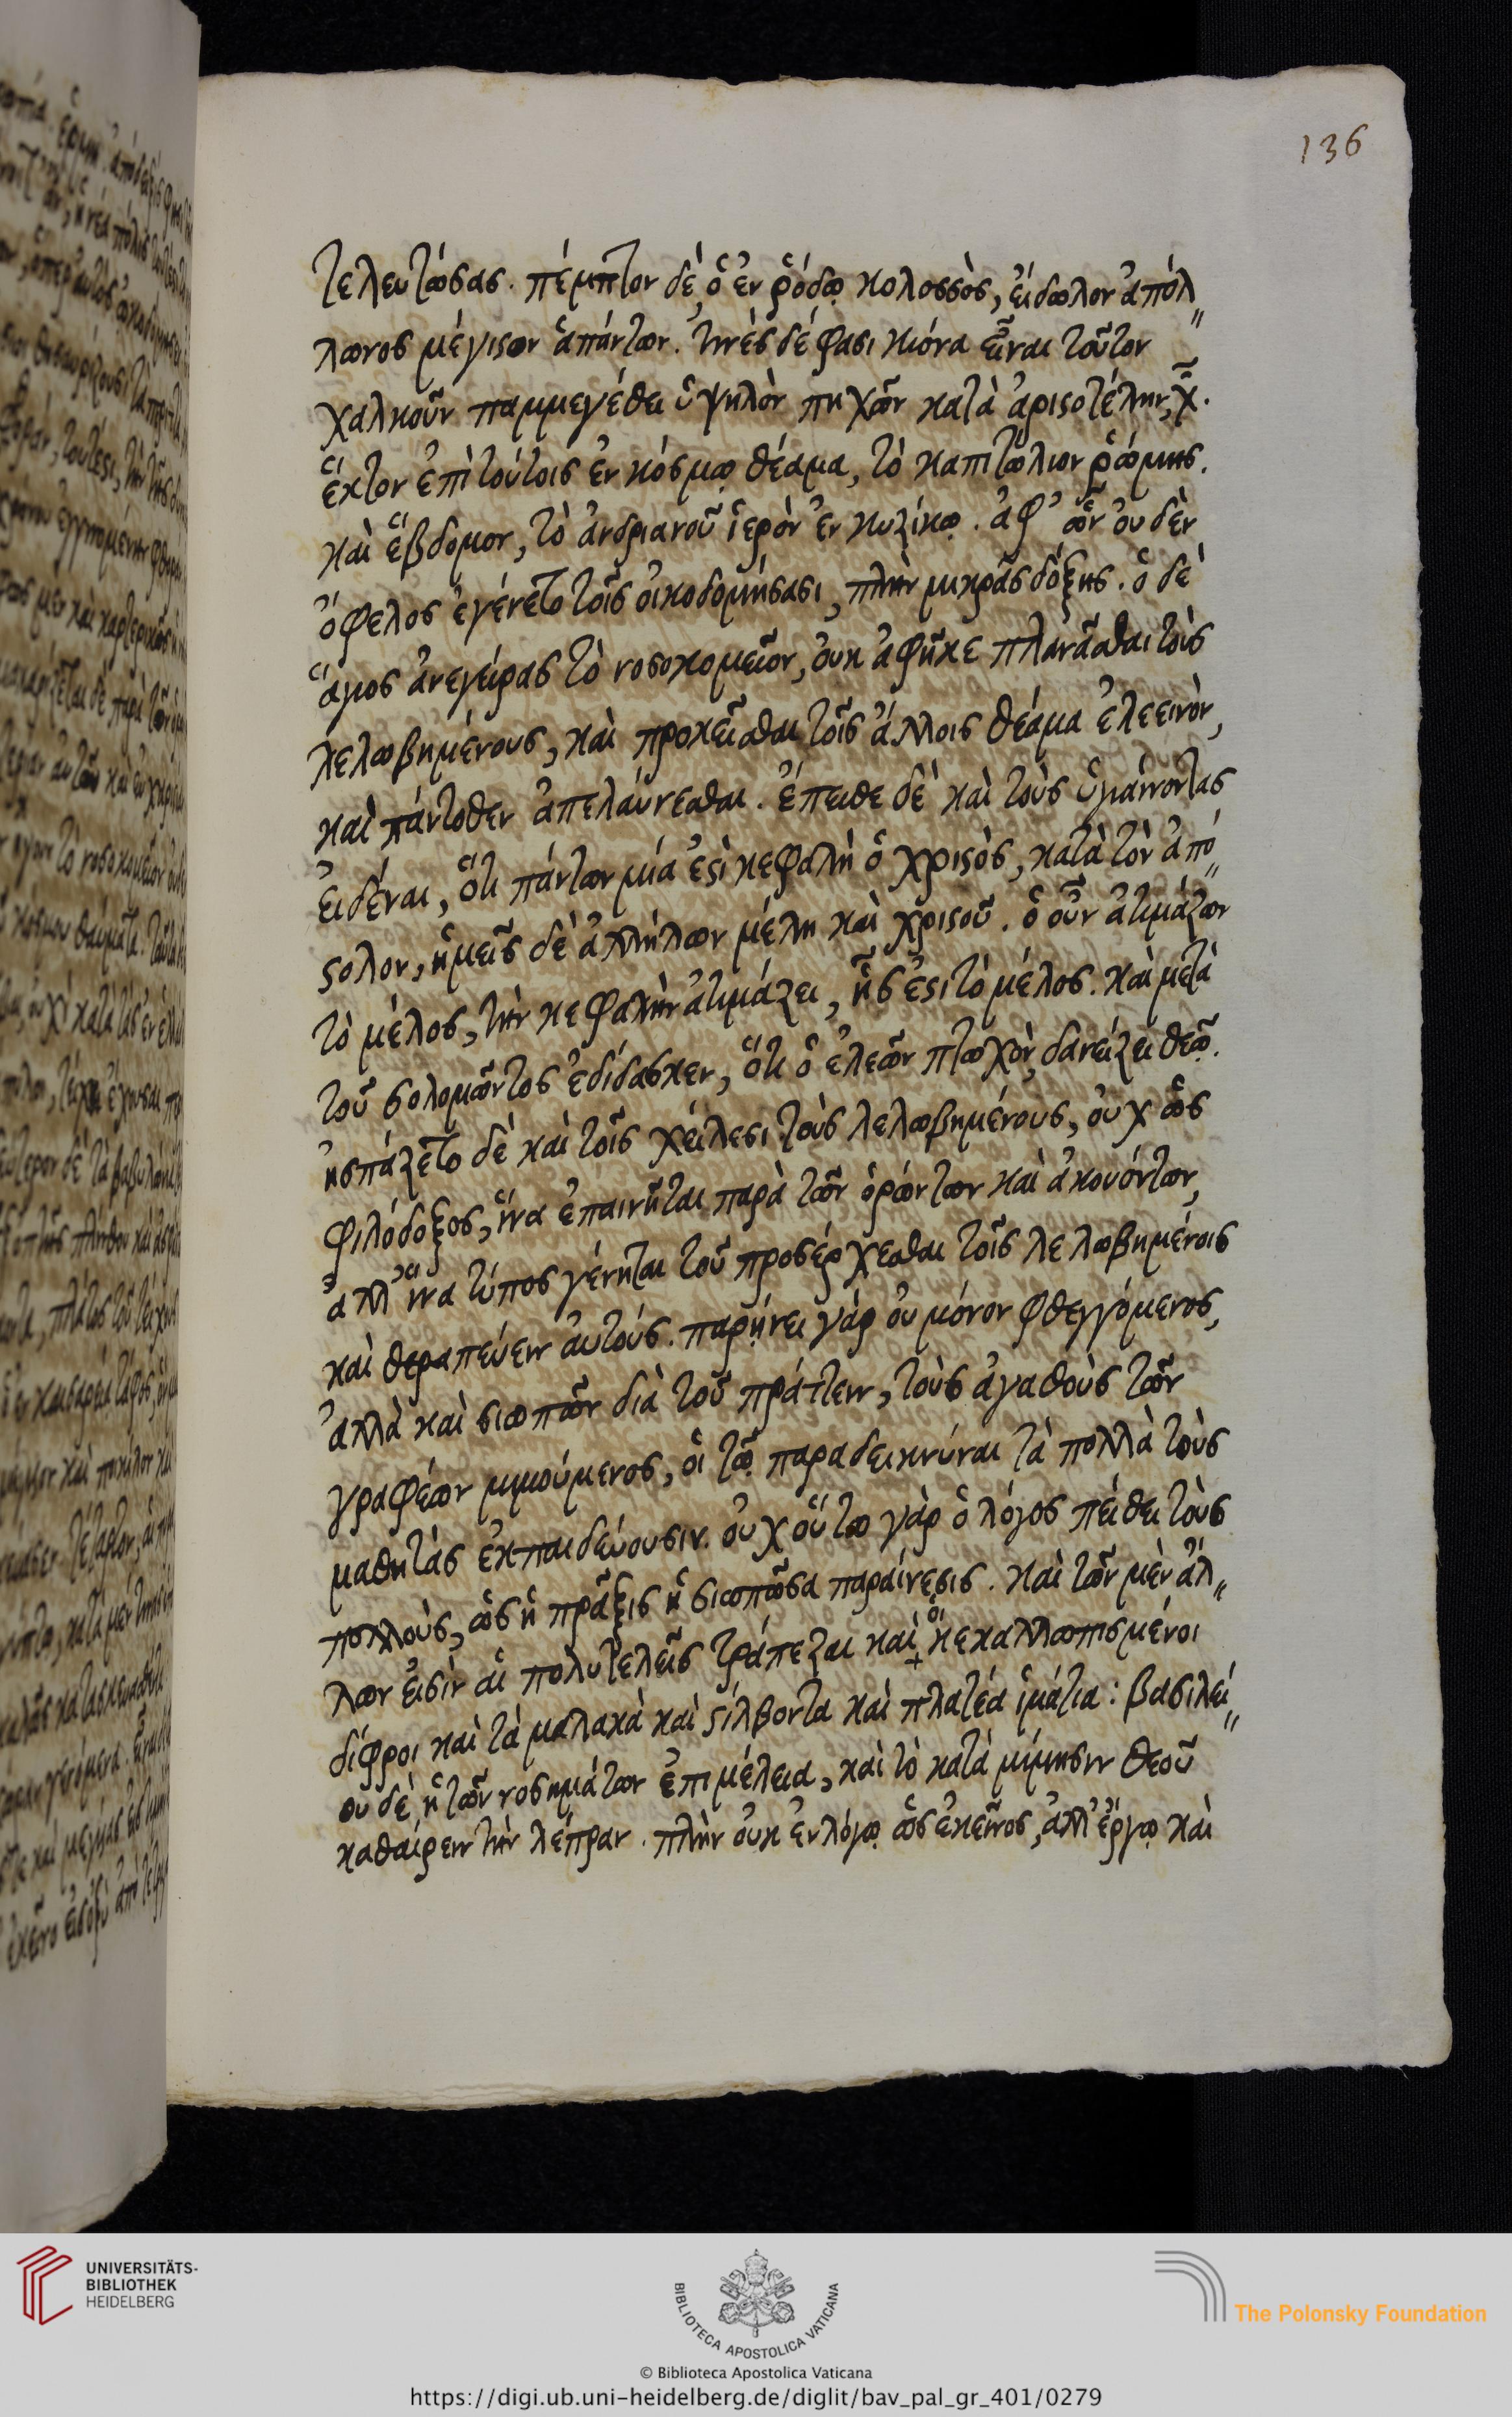 136
τελευτώσας. πέμπτον δὲ, ὁ ἐν ῥόδῳ κολοσσὸς, εἴδωλον ἀπόλ„
λωνος μέγιστον ἁπάντων. τινὲς δέ φασι κιόνα εἶναι τοῦτον
χαλκοῦν παμμεγέθει ὑψηλὸν πηχῶν κατὰ ἀριστοτέλην, χ̄.
ἕκτον ἐπὶ τούτοις ἐν κόσμῳ θέαμα, τὸ καπιτώλιον ῥώμης.
καὶ ἕβδομον, τὸ ἀνδριανοῦ ἱερὸν ἐν κυζίκῳ. ἀφ' ὧν οὐδὲν
ὄφελος ἐγένετο τοῖς οἰκοδομήσασι, πλὴν μικρᾶς δόξης. ὁ δὲ
ἅγιος ἀνεγείρας τὸ νοσοκομεῖον, οὐκ ἀφῆκε πλανᾶσθαι τοὺς
λελωβημένους, καὶ προκεῖσθαι τοῖς ἄλλοις θέαμα ἐλεεινὸν,
καὶ πάντοθεν ἀπελαύνεσθαι. ἔπειθε δὲ καὶ τοὺς ὑγιαίνοντας
εἰδέναι, ὅτι πάντων μία ἐστὶ κεφαλὴ ὁ χριστὸς, κατὰ τὸν ἀπό„
στολον, ἡμεῖς δὲ ἀλλήλων μέλη καὶ χριστοῦ. ὁ οὖν ἀτιμάζων
τὸ μέλος, τὴν κεφαλὴν ἀτιμάζει, ἧς ἐστὶ τὸ μέλος. καὶ μετὰ
τοῦ σολομῶντος ἐδίδασκεν, ὅτι ὁ ἐλεῶν πτωχὸν, δανείζει θεῷ.
ἠσπάζετο δὲ καὶ τοῖς χείλεσι τοὺς λελωβημένους, οὐχ ὡς
φιλόδοξος, ἵνα ἐπαινῆται παρὰ τῶν ὁρώντων καὶ ἀκουόντων,
ἀλλ' ἵνα τύπος γένηται τοῦ προσέρχεσθαι τοῖς λελωβημένοις
καὶ θεραπεύειν αὐτούς. παρῄνει γὰρ οὐ μόνον φθεγγόμενος,
ἀλλὰ καὶ σιωπῶν διὰ τοῦ πράττειν, τοὺς ἀγαθοὺς τῶν
γραφέων μιμούμενος, οἳ τῷ παραδεικνύναι τὰ πολλὰ τοὺς
μαθητὰς ἐκπαιδεύουσιν. οὐχ οὕτω γὰρ ὁ λόγος πείθει τοὺς
πολλοὺς, ὡς ἡ πρᾶξις ἡ σιωπῶσα παραίνεσις. καὶ τῶν μὲν ἀλ„
λων εἰσὶν αἱ πολυτελεῖς τράπεζαι καὶ οἱ κεκαλλωπισμένοι
δίφροι καὶ τὰ μαλακὰ καὶ στίλβοντα καὶ πλατέα ἱμάτια: βασιλεί„
ου δὲ, ἡ τῶν νοσημάτων ἐπιμέλεια, καὶ τὸ κατὰ μίμησιν θεοῦ
καθαίρειν τὴν λέπραν. πλὴν οὐκ ἐν λόγῳ ὡς ἐκεῖνος, ἀλλ' ἔργῳ καὶ
UNIVERSITÄTS-
BIBLIOTHEK
HEIDELBERG
BIBLIOTECA APOSTOLICA VATICANA
The Polonsky Foundation
© Biblioteca Apostolica Vaticana
https://digi.ub.uni-heidelberg.de/diglit/bav_pal_gr_401/0279